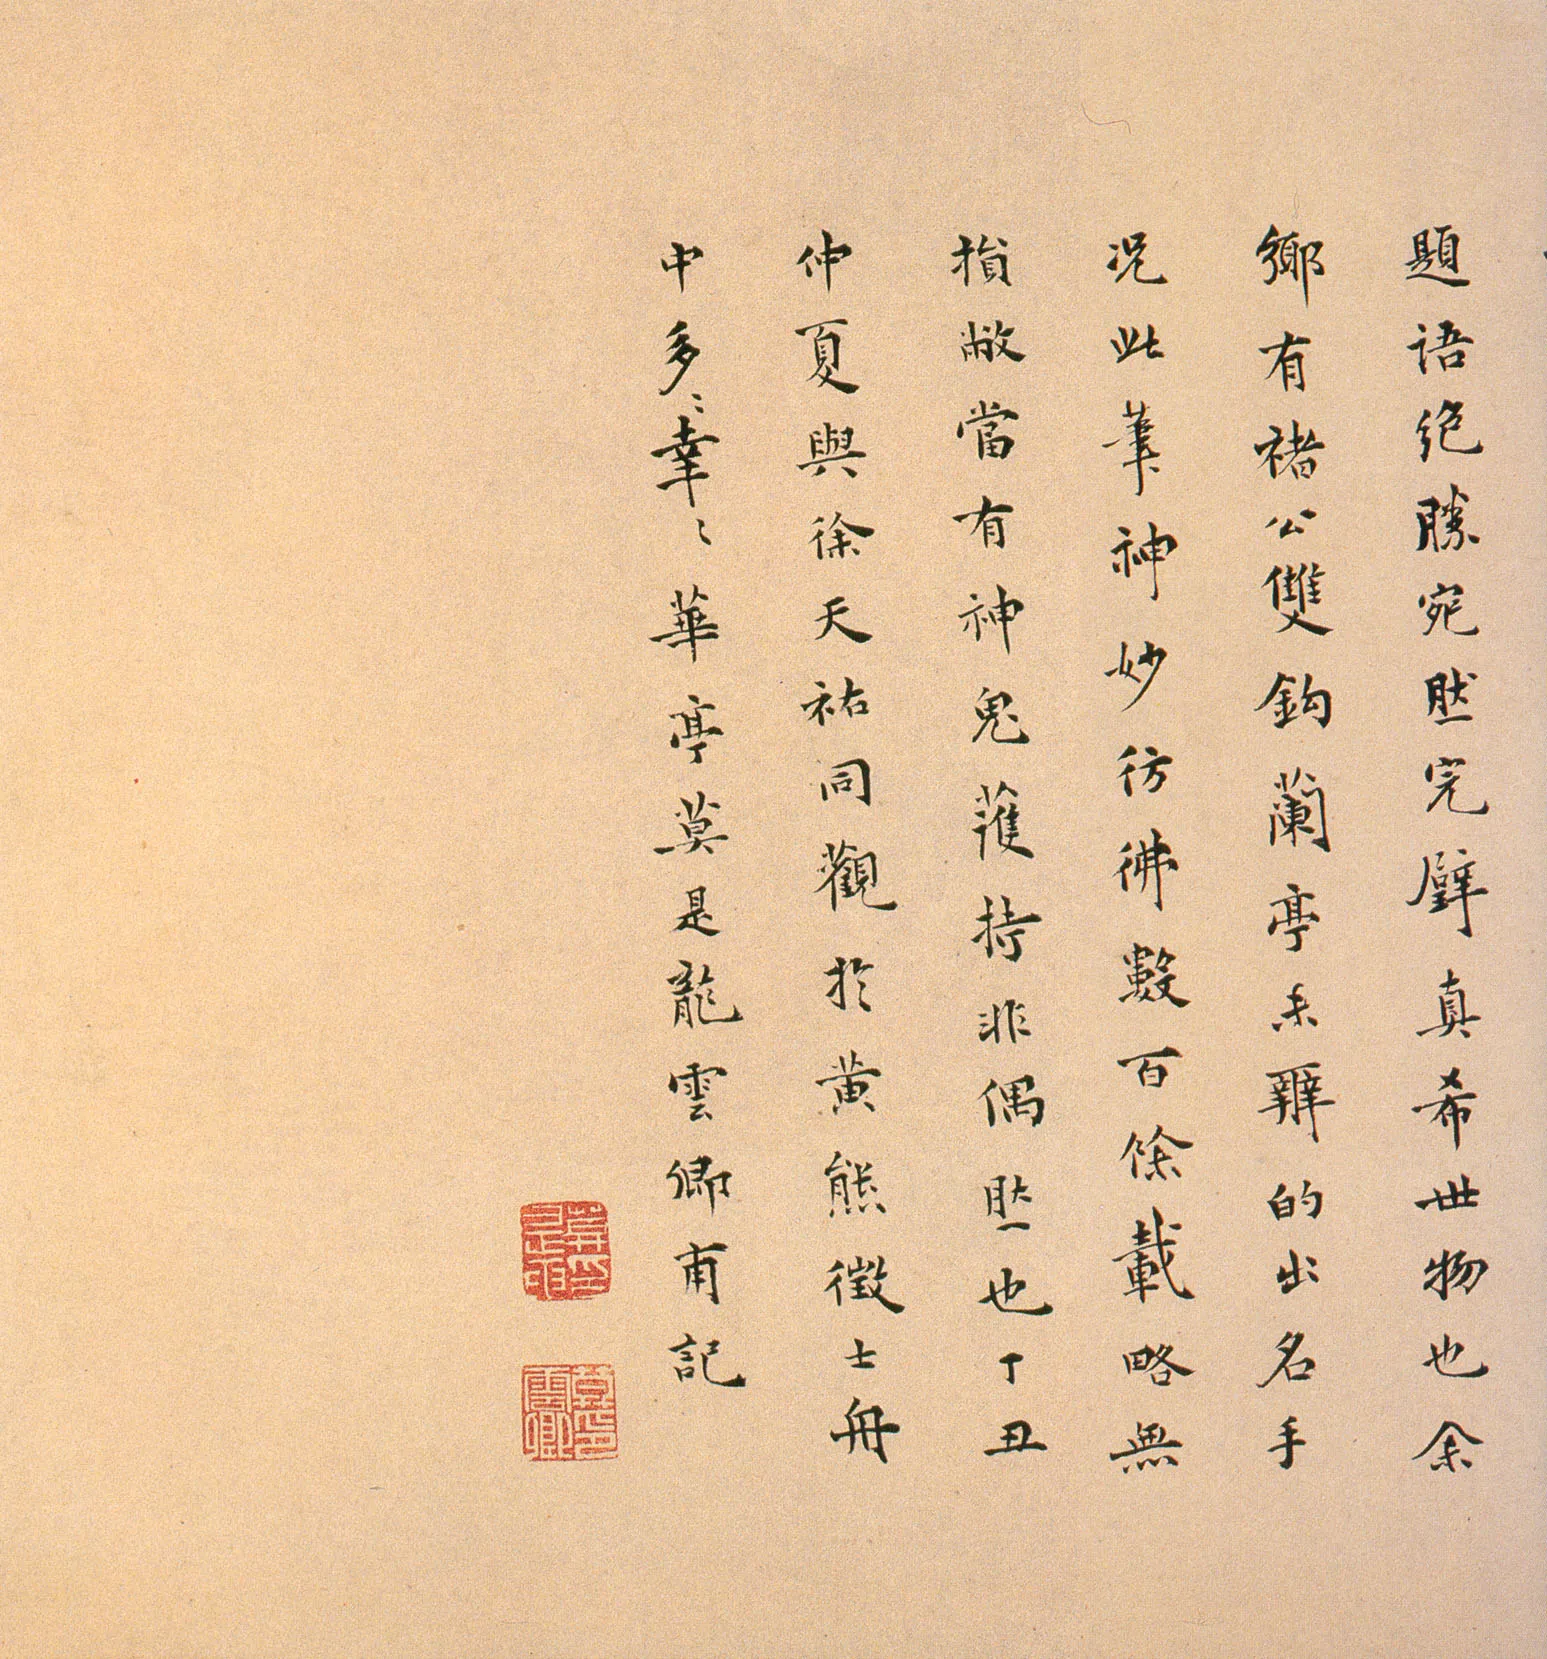 題語絕勝宛然完璧真希世物也余
鄉有褚公雙鈎蘭亭未辨的出名手
況此筆神妙彷彿數百餘載略無
損敝當有神鬼護持非偶然也丁丑
仲夏與徐天祐同觀於黃熊徵士舟
中多〻幸〻華亭莫是龍雲卿甫記